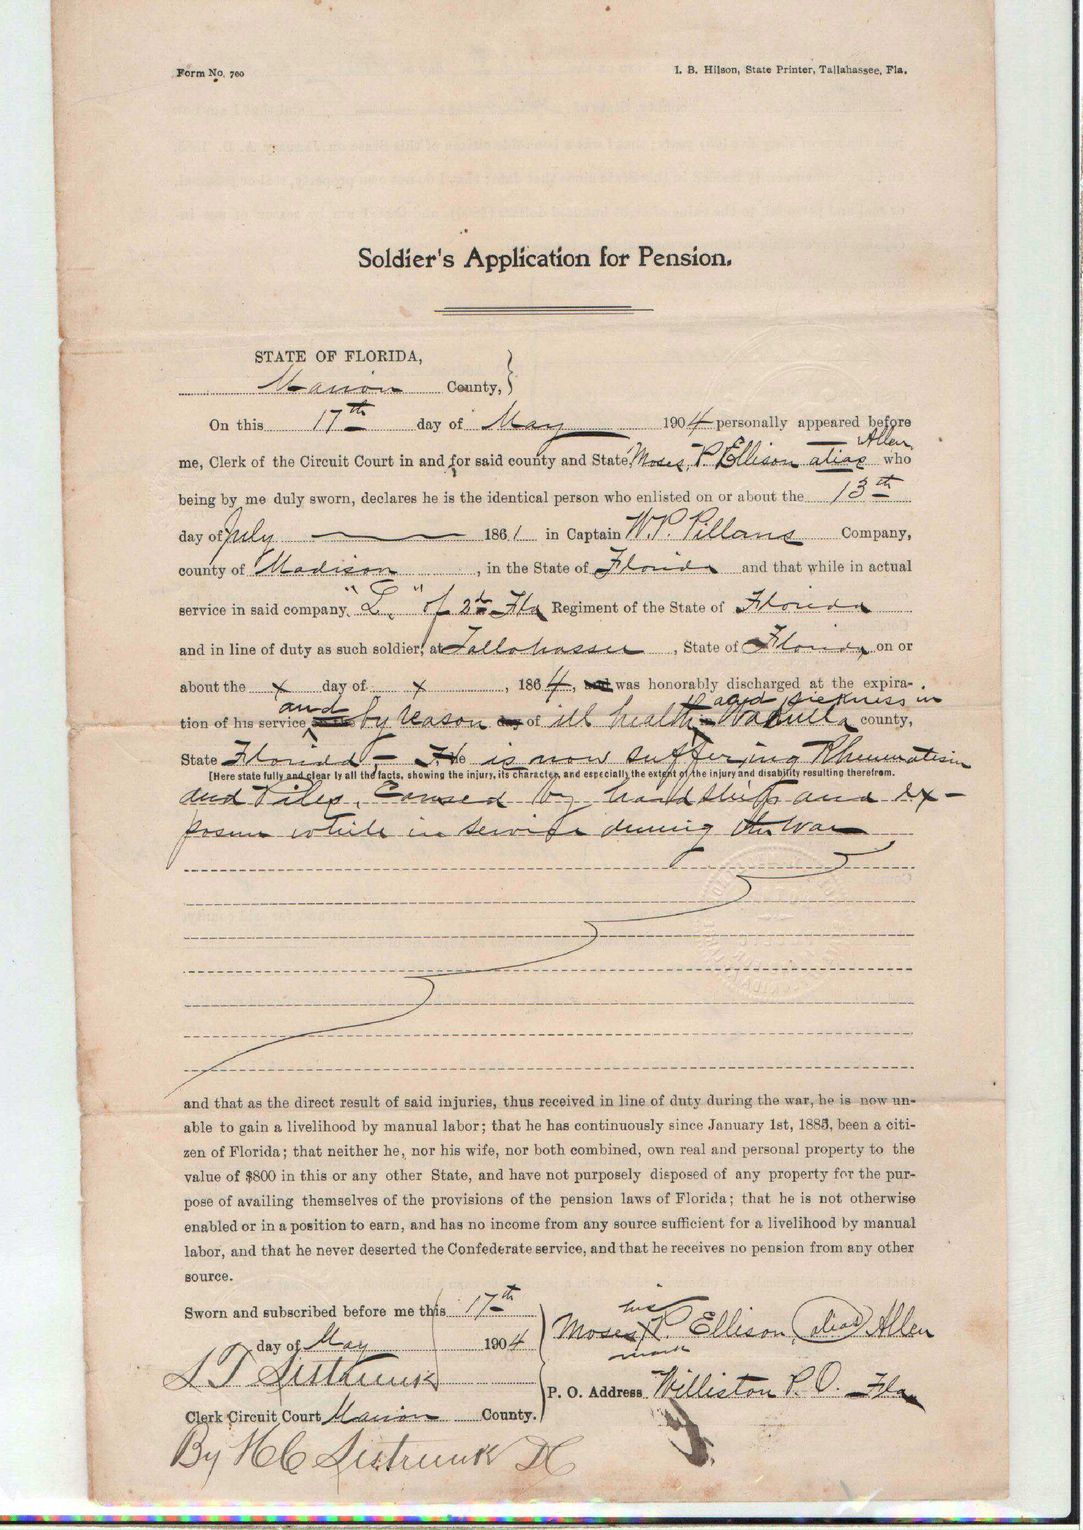 Form No. 760 I. B. Hilson, State Printer, Tallahassee, Fla.
Soldier's Application for Pension.
STATE OF FLORIDA,
Marion County,
On this 17th day of May 1904 personally appeared before
me, Clerk of the Circuit Court in and for said county and State, Moses P. Ellison alias Allen who
being by me duly sworn, declares he is the identical person who enlisted on or about the 13th
day of July 1861 in Captain W. P. Pillans Company,
county of Madison, in the State of Florida and that while in actual
service in said company, "L" of 2d Fla Regiment of the State of Florida
and in line of duty as such soldier, at Tallahassee, State of Florida, on or
about the x day of x, 1864, was honorably discharged at the expira-
tion of his service and by reason of ill health and sickness in Wakulla county,
State Florida - He is now suffering Rheumatism
[Here state fully and clearly all the facts, showing the injury, its character, and especially the extent of the injury and disability resulting therefrom.
and Piles, Caused by hardship and ex-
posure while in service during the War
and that as the direct result of said injuries, thus received in line of duty during the war, he is now un-
able to gain a livelihood by manual labor; that he has continuously since January 1st, 1885, been a citi-
zen of Florida; that neither he, nor his wife, nor both combined, own real and personal property to the
value of $800 in this or any other State, and have not purposely disposed of any property for the pur-
pose of availing themselves of the provisions of the pension laws of Florida; that he is not otherwise
enabled or in a position to earn, and has no income from any source sufficient for a livelihood by manual
labor, and that he never deserted the Confederate service, and that he receives no pension from any other
source.
Sworn and subscribed before me this 17th
day of May 1904
S T Sistrunk
Clerk Circuit Court Marion County.
By H C Sistrunk DC
his
Moses X P. Ellison, alias Allen
mark
P. O. Address Williston P. O. Fla